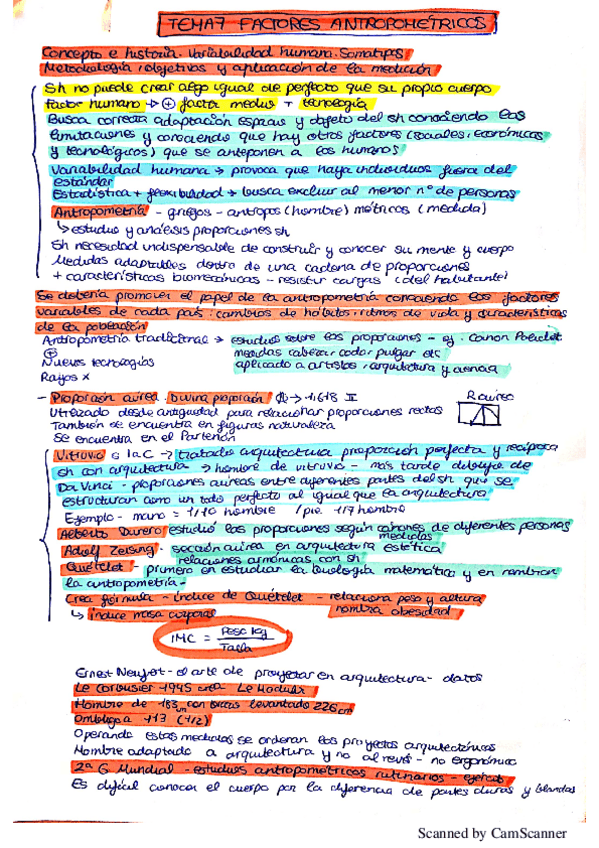 TEMA 7 FACTORES ANTROPOMÉTRICOS
Concepto e historia. Variabilidad humana. Somatipos
Metodología, objetivos y aplicación de la medición
Sh no puede crear algo igual de perfecto que su propio cuerpo
Factor humano → ⊕ factor medio + tecnología
Busca correcta adaptación espacio y objeto del sh conociendo las
limitaciones y conociendo que hay otros factores (sociales, económicos
y tecnológicos) que se anteponen a los humanos
Variabilidad humana → provoca que haya individuos fuera del
estándar
Estadística + flexibilidad → busca excluir al menor nº de personas
Antropometría - griegos - antropos (hombre) métricos (medida)
↳ estudio y análisis proporciones sh
Sh necesidad indispensable de construir y conocer su mente y cuerpo
Medidas adaptables dentro de una cadena de proporciones
+ características biomecánicas - resistir cargas (del habitante)
Se debería promover el papel de la antropometría conociendo los factores
variables de cada país: cambios de hábitos, ritmos de vida y características
de la población
Antropometría tradicional → estudios sobre las proporciones - ej. Canon Policlet
⊕ medidas cabeza, codo, pulgar etc
Nuevas tecnologías aplicado a artistas, arquitectura y ciencia
Rayos X
- Proporción aúrea. Divina proporción → 1,618 R aúreo
Utilizado desde antigüedad para relacionar proporciones rectas
También se encuentra en figuras naturaleza
Se encuentra en el Partenón
Vitruvio s I a.C → tratado arquitectura proporción perfecta y recíproca
sh con arquitectura → hombre de vitruvio - más tarde dibujo de
Da Vinci - proporciones aúreas entre diferentes partes del sh que se
estructuran como un todo perfecto al igual que la arquitectura
Ejemplo - mano = 1/10 hombre / pie 1/7 hombre
Alberto Durero estudió las proporciones según cánones de diferentes personas
medidas
Adolf Zeising. sección aúrea en arquitectura estética
relaciones armónicas con sh
Quételet - primero en estudiar la biología matemática y en nombrar
la antropometría -
Crea fórmula - índice de Quételet - relaciona peso y altura
↳ índice masa corporal nombra obesidad
IMC = Peso kg / Talla
Ernest Neufert - el arte de proyectar en arquitectura - datos
Le Corbusier 1945 crea Le Modulor
Hombre de 183cm con brazo levantado 226cm
Ombligo a 113 (1/2)
Operando estas medidas se ordenan los proyectos arquitectónicos
Hombre adaptado a arquitectura y no al revés - no ergonómico
2ª G Mundial - estudios antropométricos rutinarios - ejércitos
Es difícil conocer el cuerpo por la diferencia de partes duras y blandas
Scanned by CamScanner